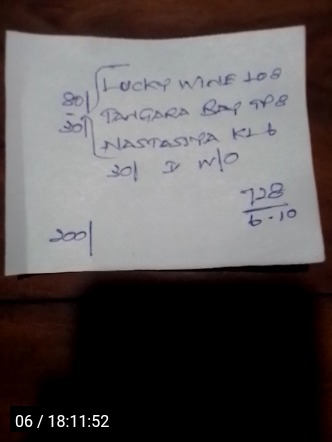 80/ LUCKY WINE 108
30/ TANGARA BAY TP8
NASTASSYA KL6
30/ D W/O
728
6-10
200/
06 / 18:11:52